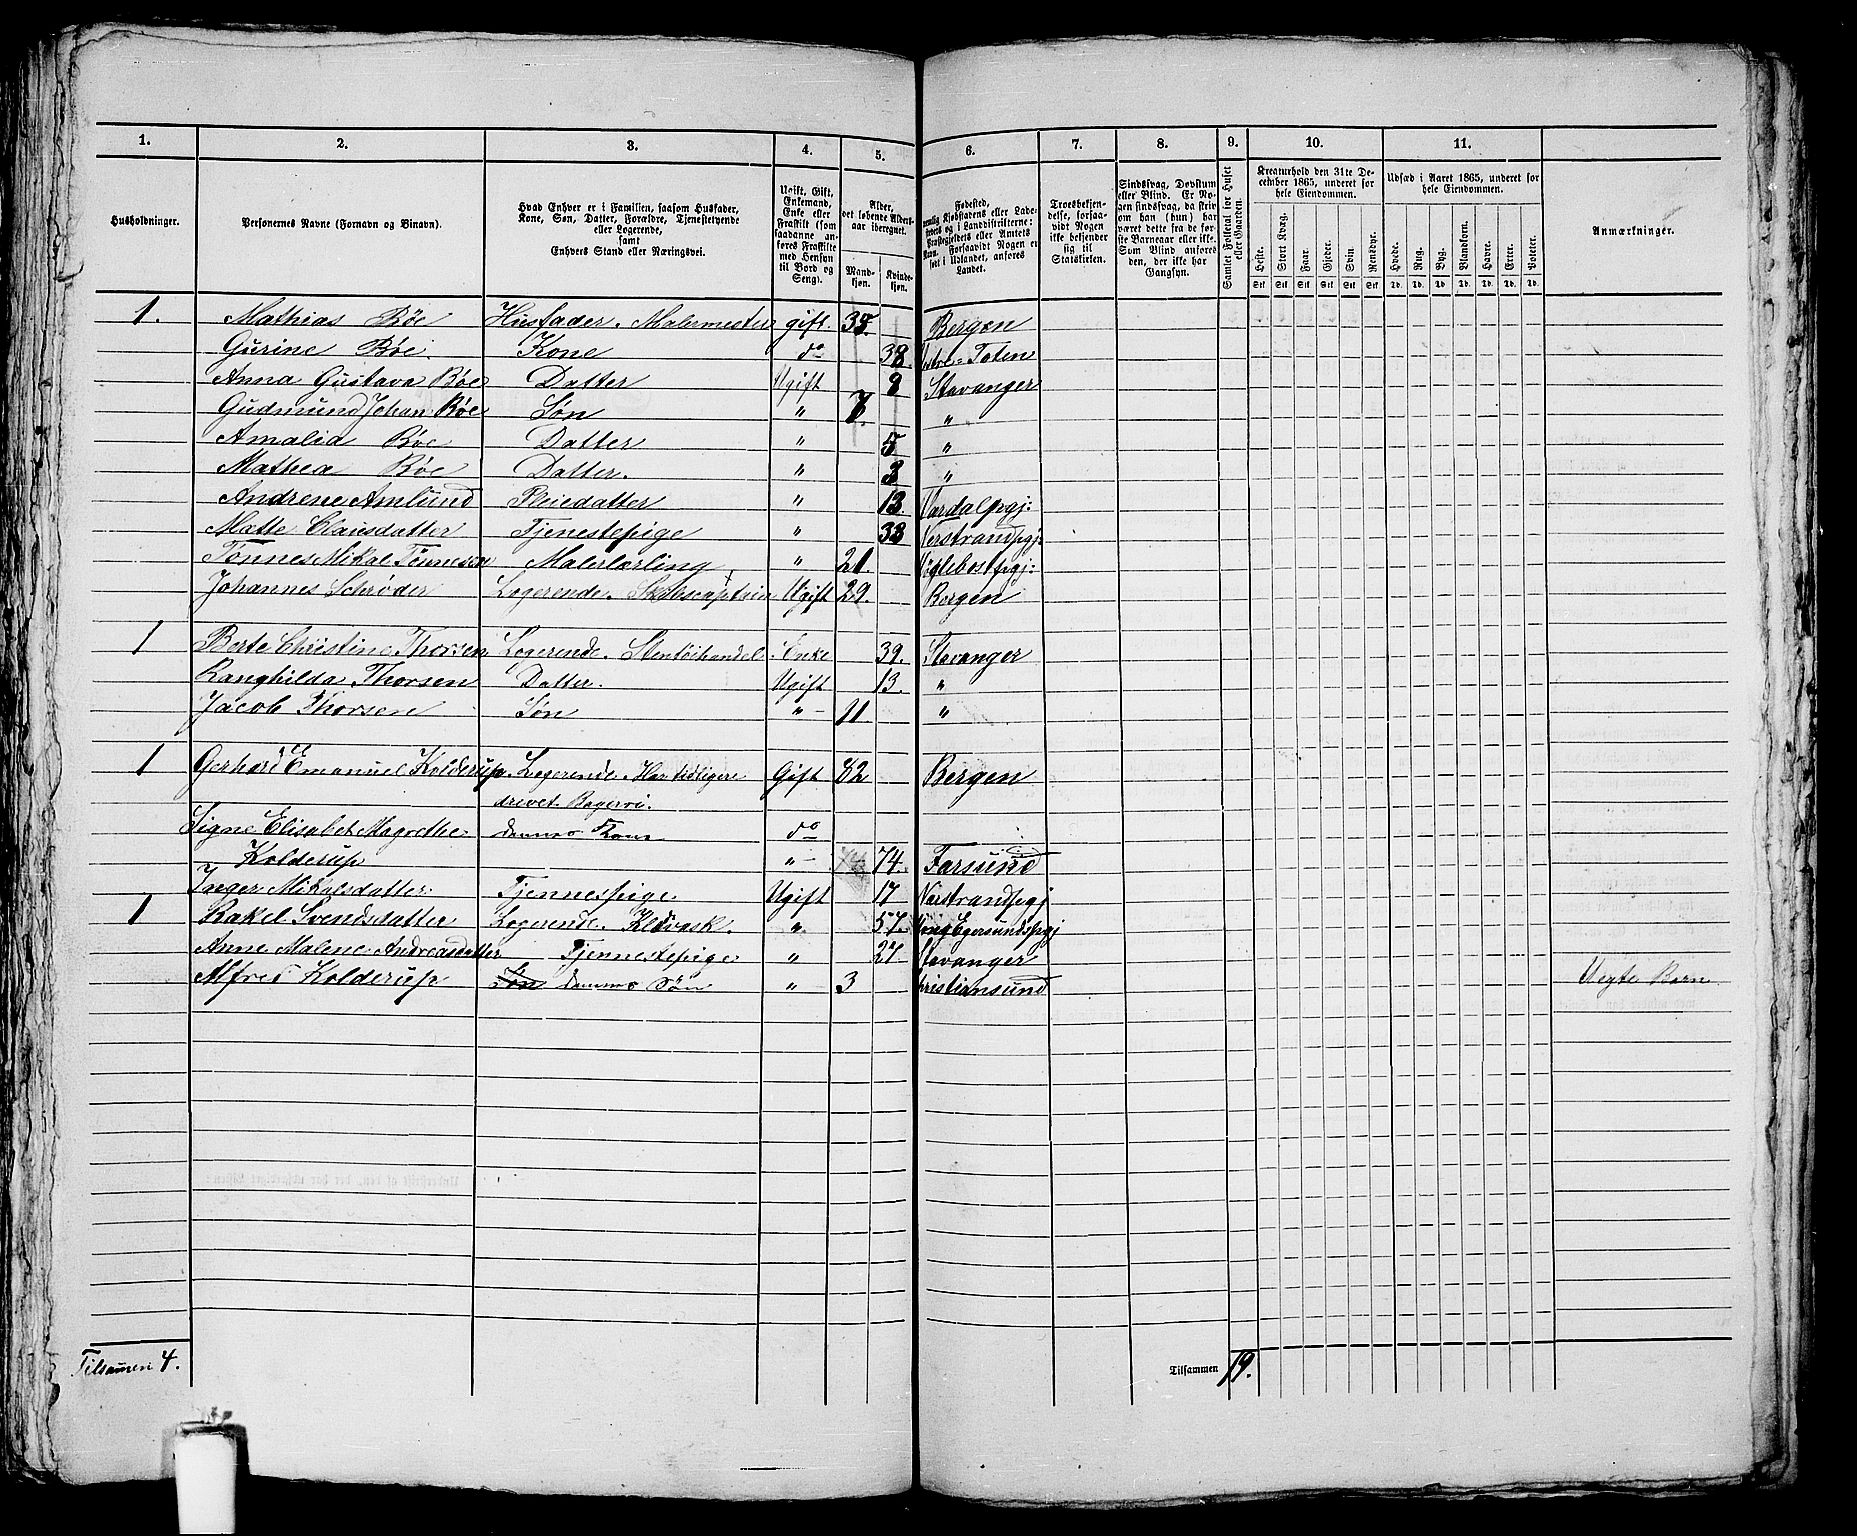 1. 2. 3. 4. 5. 6. 7. 8. 9. 10. 11.
Husholdninger. Personernes Navne (Fornavn og Binavn). Hvad Enhver er i Familien, saasom Husfader, Kone, Søn, Datter, Forældre, Tjenestetyende eller Logerende, samt Enhvers Stand eller Næringsvei. Ugift, Gift, Enkemand, Enke eller Fraskilt (som saadanne anføres Fraskilte med Hensyn til Bord og Seng). Alder, det løbende Alders-aar iberegnet. Mandkjøn. Kvindekjøn.
Fødested, nemlig Kjøbstadens eller Ladestedets og i Landdistrikterne: Præstegjeldets eller Amtets Navn. Forsaavidt Nogen er født i Udlandet, anføres Landet. Troesbekjendelse, forsaavidt Nogen ikke bekjender sig til Statskirken. Sindssvag, Døvstum eller Blind. Er Nogen sindssvag, da skrives om han (hun) har været dette fra de første Barneaar eller ikke. Som Blind anføres den, der ikke har Gangsyn. Samlet Folketal for Huset eller Gaarden.
Kreaturhold den 31te December 1865, underet for hele Eiendommen. Heste. Stort Kvæg. Faar. Gjeder. Svin. Rensdyr. Stk Stk Stk Stk Stk Stk
Udsæd i Aaret 1865, underet for hele Eiendommen. Hvede. Rug. Byg. Blandkorn. Havre. Erter. Poteter. Td. Td. Td. Td. Td. Td. Td.
Anmærkninger.
1. Mathias Bøe Husfader. Malermester gift. 35. Bergen
Gurine Bøe. Kone do 38. Vestre-Toten
Anna Gustava Bøe Datter Ugift 9 Stavanger
Gudmund Johan Bøe Søn " 7. "
Amalia Bøe Datter " 5 "
Mathea Bøe Datter. " 3 "
Andrene Amlund Pleiedatter " 13 Vardal Pgj:
Mætte Clausdatter Tjenestepige " 38 Nerstrandpgj:
Tønnes Mikal Tønnesen Malerlærling " 21.
Johannes Schrøder Logerende. Skibscaptein Ugift 29. Bergen
1 Berte Christine Thorsen Logerende. Stentøihandel. Enke 39. Stavanger
Ranghilda Thorsen Datter. Ugift 13. "
Jacob Thorsen Søn " 11 "
1 Gerhard Emanuel Kolderup. Logerende. Har tidligere Gift 82 Bergen
drivet Bagervi.
Signe Elisabet Magrethe dennes Kone do
Kolderup " 74. Farsund
Inger Mikalsdatter. Tjennespige Ugift 17 Nerstrandpgj
1 Rakel Svendsdatter Logerende. Kldvask. " 57. Egersundspgj
Anne Malene Andreasdatter Tjennestepige " 27. Stavanger
Alfred Kolderup Søn dennes Søn " 3 Christiansund Uegte Barn
Tilsamen 4. Tilsammen 19.